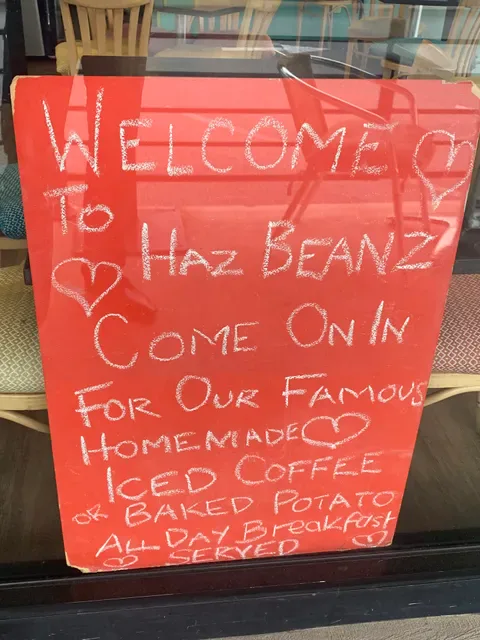 WELCOME
To
HAZ BEANZ
COME ON IN
FOR OUR FAMOUS
HOMEMADE
ICED COFFEE
OR BAKED POTATO
ALL DAY Breakfast
SERVED